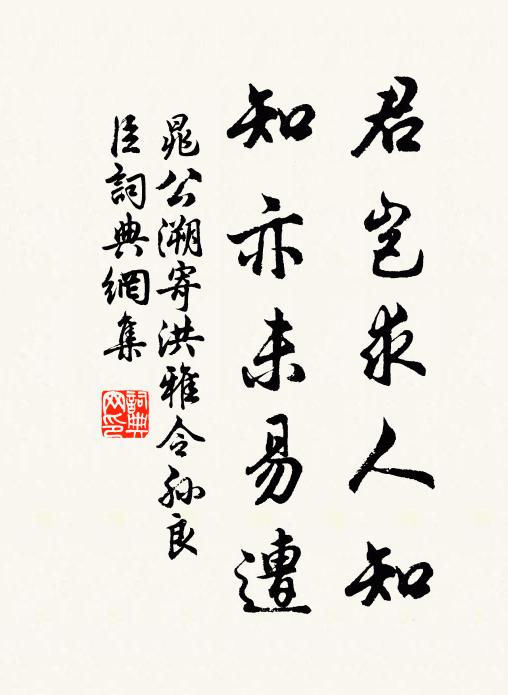 君岂求人知
知亦未易遭
晁公溯寄洪雅令孙良
臣詞典網集
詞典网印